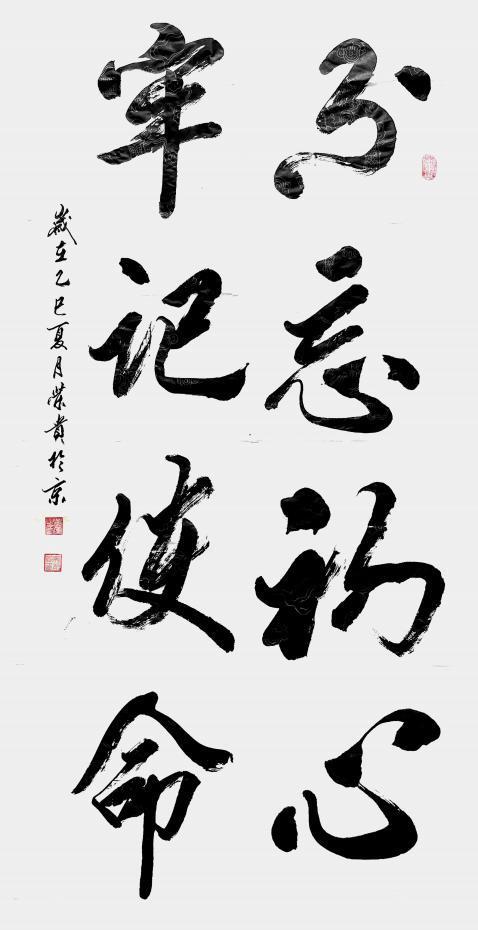 不忘初心
牢记使命
嵗在乙巳夏月荣贵於京